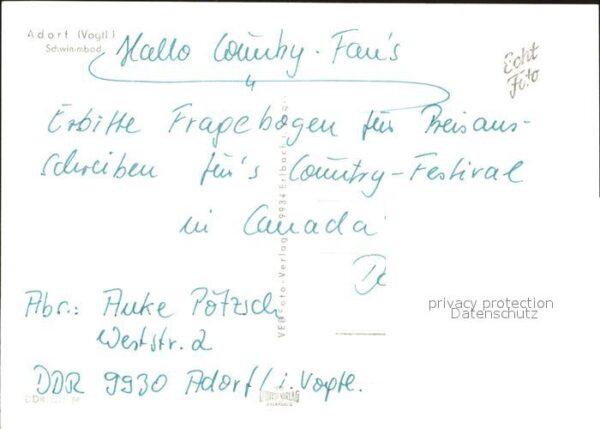 Adorf (Vogtl.)
Schwimmbad
Hallo Country-Fan's
Echt
Foto
Erbitte Fragebogen für Preisaus-
schreiben für's Country-Festival
in Canada
privacy protection
Datenschutz
Abs.: Anke Pötzsch
Weststr. 2
DDR 9930 Adorf / i. Vogtl.
VEB Foto-Verlag 9934 Erlbach